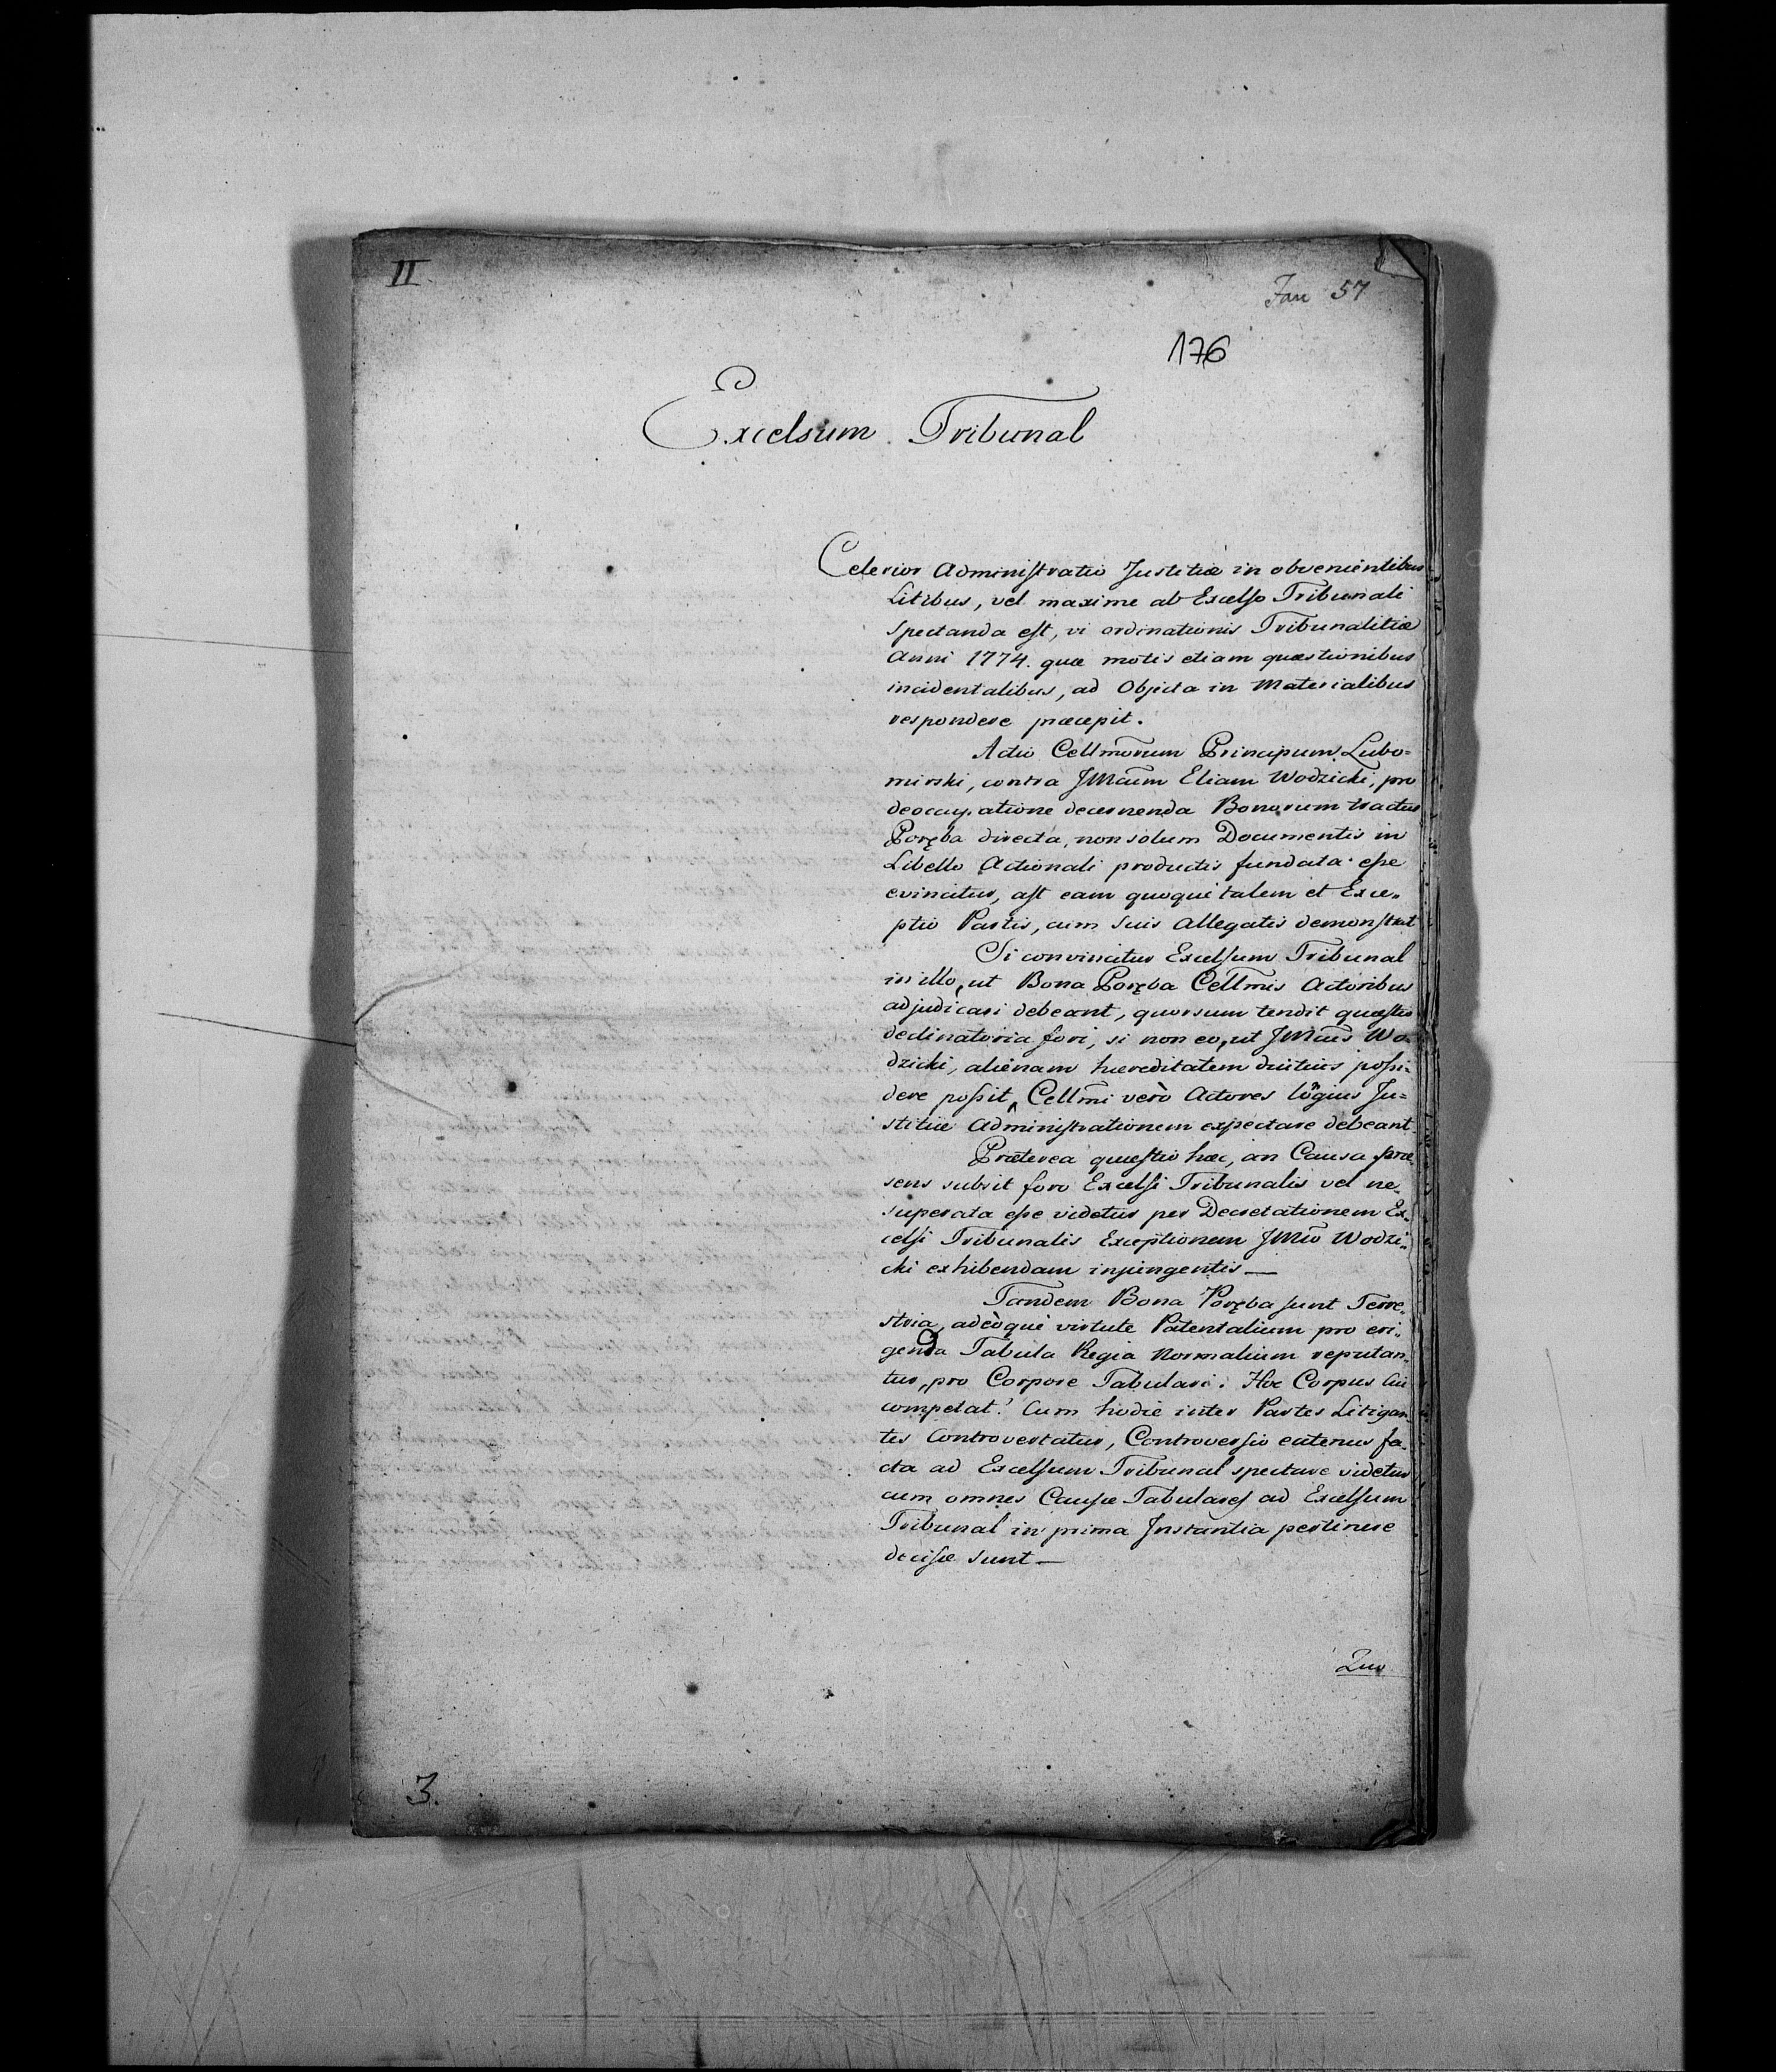 II.
Fau 57
176
Excelsum Tribunal
Celerior Administratio Justitiæ in obvenientibus
Litibus, vel maxime ab Excelso Tribunali
Spectanda est, vi ordinationis Tribunalitiæ
Anni 1774. quæ motis etiam quæstionibus
incidentalibus, ad Objecta in Materialibus
respondere præcepit.
Actio Cellmorum Principum Lubo=
mirski, contra JMcum Eliam Wodzicki, pro
deoccupatione decernenda Bonorum tractus
Poręba directa, non solum Documentis in
Libello Actionali productis fundata esse
evincitur, ast eam quoque talem et Exce=
ptio Partis, cum suis Allegatis demonstrat
Si convincitur Excelsum Tribunal
in illo, ut Bona Poręba Cellmis Actoribus
adjudicari debeant, quorsum tendit quæstio
declinatoria fori, si non eo, ut JMcus Wo=
dzicki, alienam hæreditatem diutius possi=
dere possit, Cellmi verò Actores lõgius Ju=
stitiæ Administrationem expectare debeant.
Præterea quæstio hæc, an Causa præ=
sens subsit foro Excelsi Tribunalis vel ne
superata esse videtur per Decretationem Ex=
celsi Tribunalis Exceptionem JMco Wodzi=
cki exhibendam injungentis —
Tandem Bona Poręba sunt Terre=
stria, adeòque virtute Patentalium pro eri=
genda Tabula Regia Normalium reputan=
tur, pro Corpore Tabulari. Hoc Corpus cui
competat? Cum hodie inter Partes Litigan=
tes Controvertatur, Controversio eatenus fa=
cta ad Excelsum Tribunal spectare videtur
cum omnes Causæ Tabulares ad Excelsum
Tribunal in prima Instantia pertinere
decisæ sunt —
Quo
3.